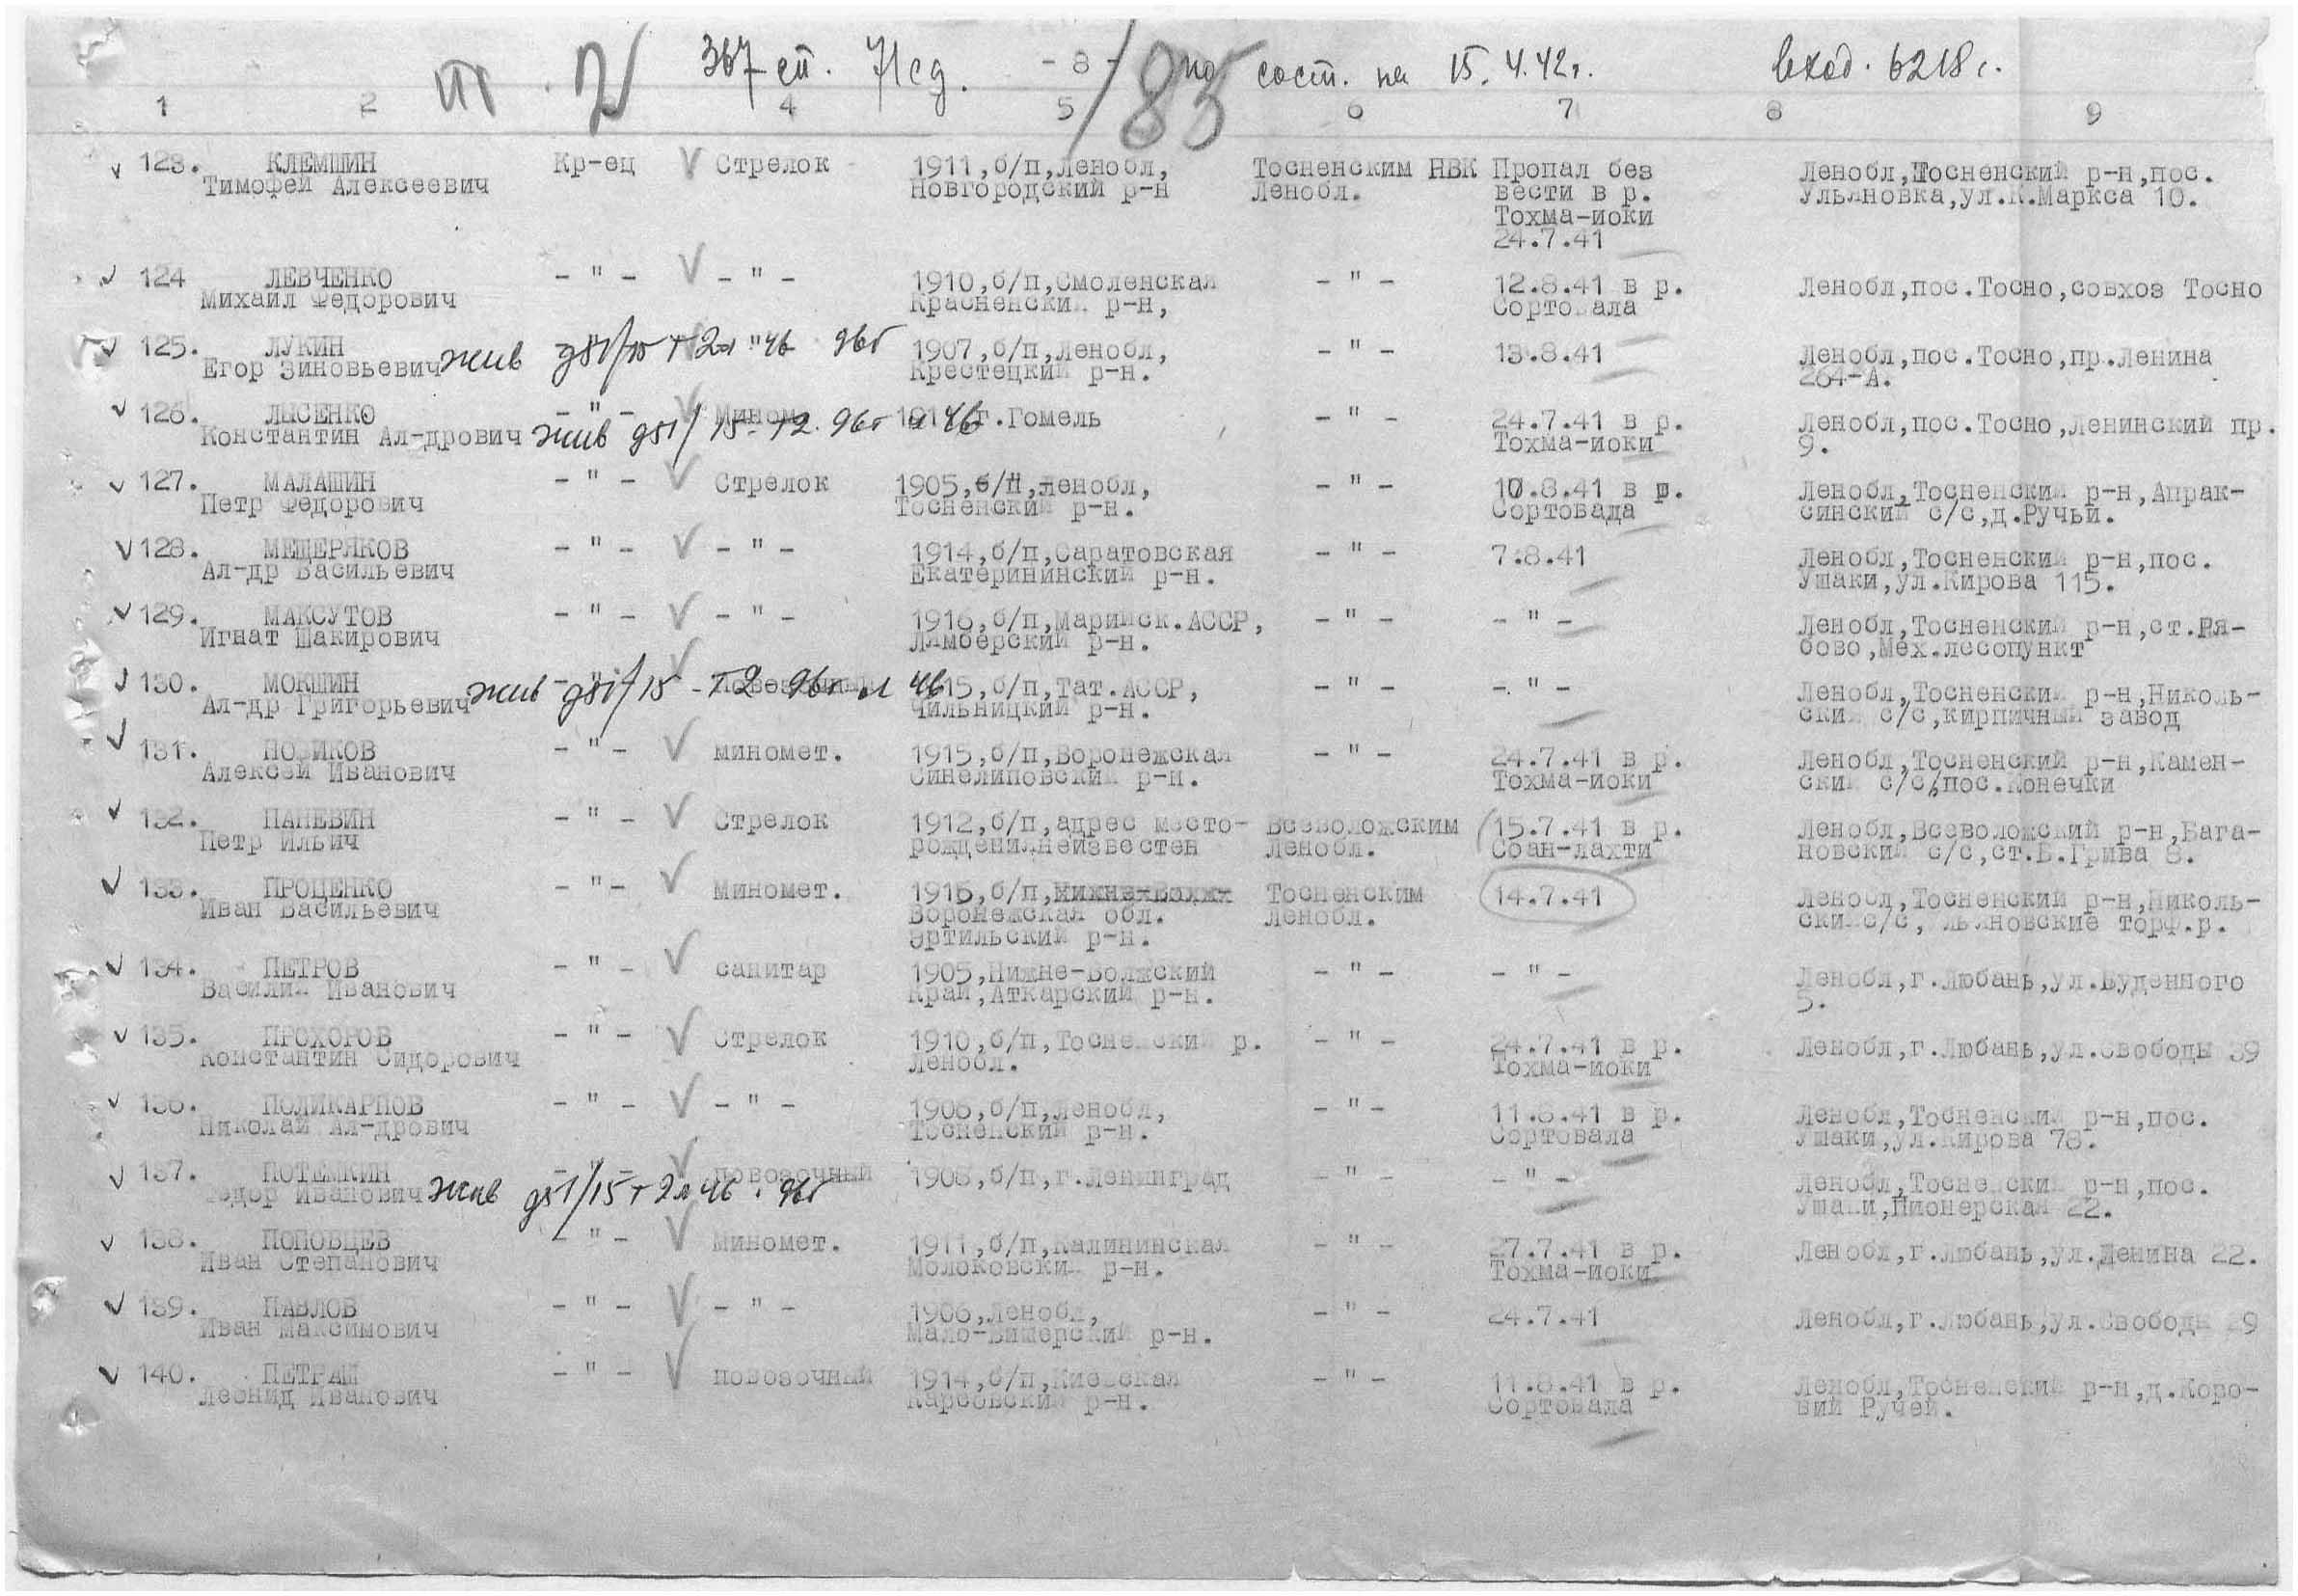 367 сп. 71 сд. - 8 - 83 по сост. на 15.4.42г. вход. 6218с.
1 2 4 5 6 7 8 9
123. КЛЕМШИН Кр-ец Стрелок 1911,б/п,Ленобл, Тосненским НВК Пропал без Ленобл,Тосненский р-н,пос.
Тимофей Алексеевич Новгородский р-н Ленобл. вести в р. Ульяновка,ул.К.Маркса 10.
Тохма-иоки
24.7.41
124 ЛЕВЧЕНКО - " - - " - 1910,б/п,Смоленская - " - 12.8.41 в р. Ленобл,пос.Тосно,совхоз Тосно
Михаил Федорович Красненский р-н, Сортовала
125. ЛУКИН 1907,б/п,Ленобл, - " - 13.8.41 Ленобл,пос.Тосно,пр.Ленина
Егор Зиновьевич жив Крестецкий р-н. 264-А.
126. ЛЫСЕНКО - " - Мином г.Гомель - " - 24.7.41 в р. Ленобл,пос.Тосно,Ленинский пр.
Константин Ал-дрович жив Тохма-иоки 9.
127. МАЛАШИН - " - Стрелок 1905,б/п,Ленобл, - " - 10.8.41 в р. Ленобл,Тосненский р-н,Апрак-
Петр Федорович Тосненский р-н. Сортовала синский с/с,д.Ручьи.
128. МЕЩЕРЯКОВ - " - - " - 1914,б/п,Саратовская - " - 7.8.41 Ленобл,Тосненский р-н,пос.
Ал-др Васильевич Екатерининский р-н. Ушаки,ул.Кирова 115.
129. МАКСУТОВ - " - - " - 1916,б/п,Мариинск.АССР, - " - - " - Ленобл,Тосненский р-н,ст.Ря-
Игнат Шакирович Лямберский р-н. бово,Мех.лесопункт
130. МОКШИН б/п,Тат.АССР, - " - - " - Ленобл,Тосненский р-н,Николь-
Ал-др Григорьевич жив Чильницкий р-н. ский с/с,кирпичный завод
131. НОВИКОВ - " - миномет. 1915,б/п,Воронежская - " - 24.7.41 в р. Ленобл,Тосненский р-н,Камен-
Алексей Иванович Синелиповский р-н. Тохма-иоки ский с/с,пос.Конечки
132. ПАНЕВИН - " - Стрелок 1912,б/п,адрес место- Всеволожским 15.7.41 в р. Ленобл,Всеволожский р-н,Вага-
Петр Ильич рождения неизвестен Ленобл. Соан-лахти новский с/с,ст.Б.Грива 8.
133. ПРОЦЕНКО - " - Миномет. 1915,б/п, Тосненским 14.7.41 Ленобл,Тосненский р-н,Николь-
Иван Васильевич Воронежская обл. Ленобл. ский с/с, торф.р.
Эртильский р-н.
134. ПЕТРОВ - " - санитар 1905,Нижне-Волжский - " - - " - Ленобл,г.Любань,ул.Буденного
Василий Иванович Край,Аткарский р-н. 5.
135. ПРОХОРОВ - " - Стрелок 1910,б/п,Тосненский р. - " - 24.7.41 в р. Ленобл,г.Любань,ул.Свободы 39
Константин Сидорович Ленобл. Тохма-иоки
136. ПОЛИКАРПОВ - " - - " - 1906,б/п,Ленобл, - " - 11.8.41 в р. Ленобл,Тосненский р-н,пос.
Николай Ал-дрович Тосненский р-н. Сортовала Ушаки,ул.Кирова 78.
137. ПОТЕМКИН - " - повозочный 1908,б/п,г.Ленинград - " - - " - Ленобл,Тосненский р-н,пос.
Федор Иванович жив Ушаки,Пионерская 22.
138. ПОПОВЦЕВ - " - Миномет. 1911,б/п,Калининская - " - 27.7.41 в р. Ленобл,г.Любань,ул.Ленина 22.
Иван Степанович Молоковский р-н. Тохма-иоки
139. ПАВЛОВ - " - - " - 1906,Ленобл, - " - 24.7.41 Ленобл,г.Любань,ул.Свободы
Иван Максимович Мало-Вишерский р-н.
140. ПЕТРАШ - " - повозочный 1914,б/п,Киевская - " - 11.8.41 в р. Ленобл,Тосненский р-н,д.Коро-
Леонид Иванович р-н. Сортовала вий Ручей.